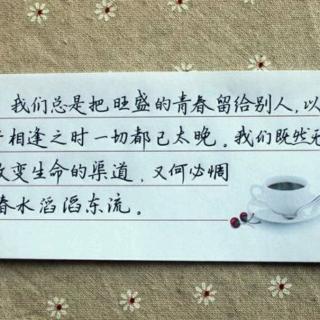 我们总是把旺盛的青春留给别人,以
相逢之时一切都已太晚。我们既然无
改变生命的渠道,又何必惆
春水滔滔东流。